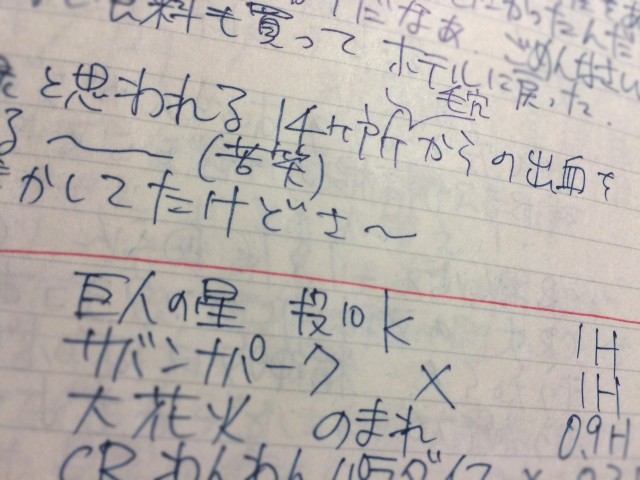 料も買って
だなぁ ごめんなさい
ホテルに戻った.
と思われる 14ヶ所からの出血を
毛穴
る〜 (苦笑)
かしてたけどさ〜
巨人の星 投10K 1H
サバンナパーク × 1H
大花火 のまれ 0.9H
CRわんわんパラダイス ×